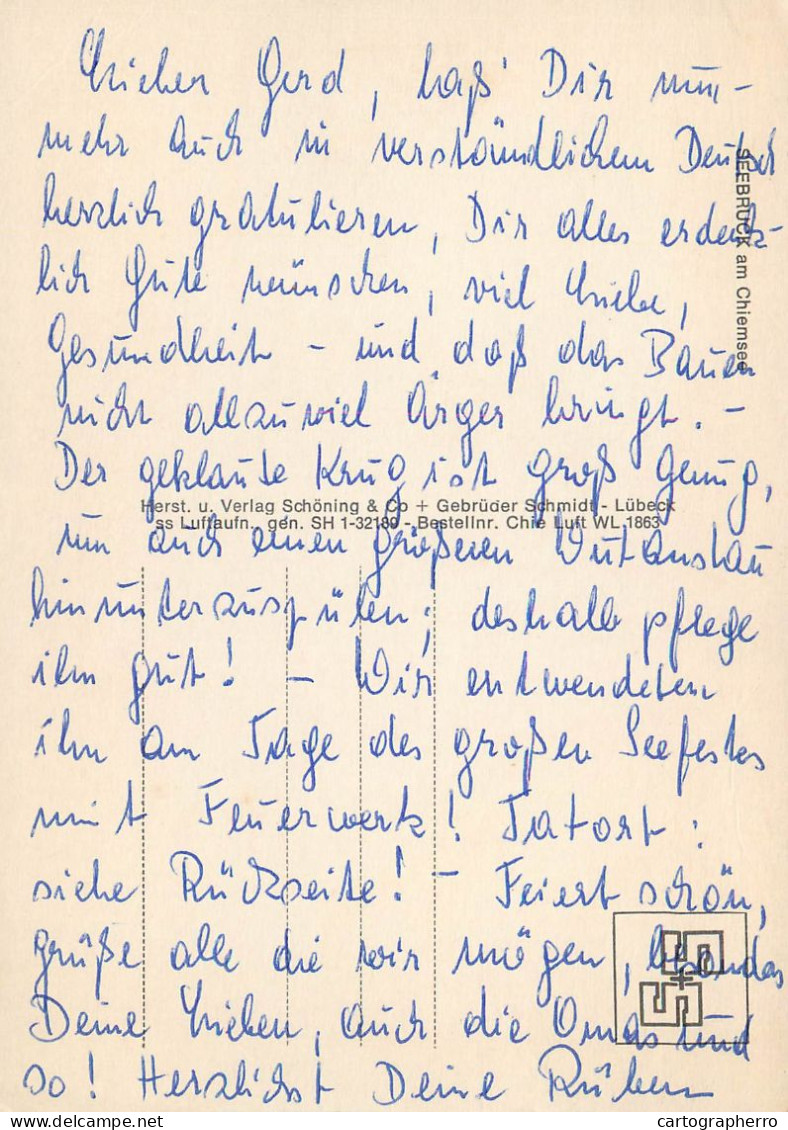 Lieber Gerd, laß' Dir nun-
mehr auch in verständlichem Deutsch
herzlich gratulieren, Dir alles erdenk-
lich Gute wünschen, viel Liebe,
Gesundheit - und daß das Bauen
nicht allzuviel Ärger bringt. -
Der geklaute Krug ist groß genug,
um auch einen größeren Wutanstau
hinunterzuspülen; deshalb pflege
ihn gut! - Wir entwendeten
ihn am Tage des großen Seefestes
mit Feuerwerk! Tatort:
siehe Rückseite! - Feiert schön,
grüße alle die wir mögen, besonders
Deine Lieben, auch die Omas und
so! Herzlichst Deine Rüben
SEEBRUCK am Chiemsee
Herst. u. Verlag Schöning & Co + Gebrüder Schmidt - Lübeck
ss Luftaufn., gen. SH 1-32180 - Bestellnr. Chie Luft WL 1863
cartographerro